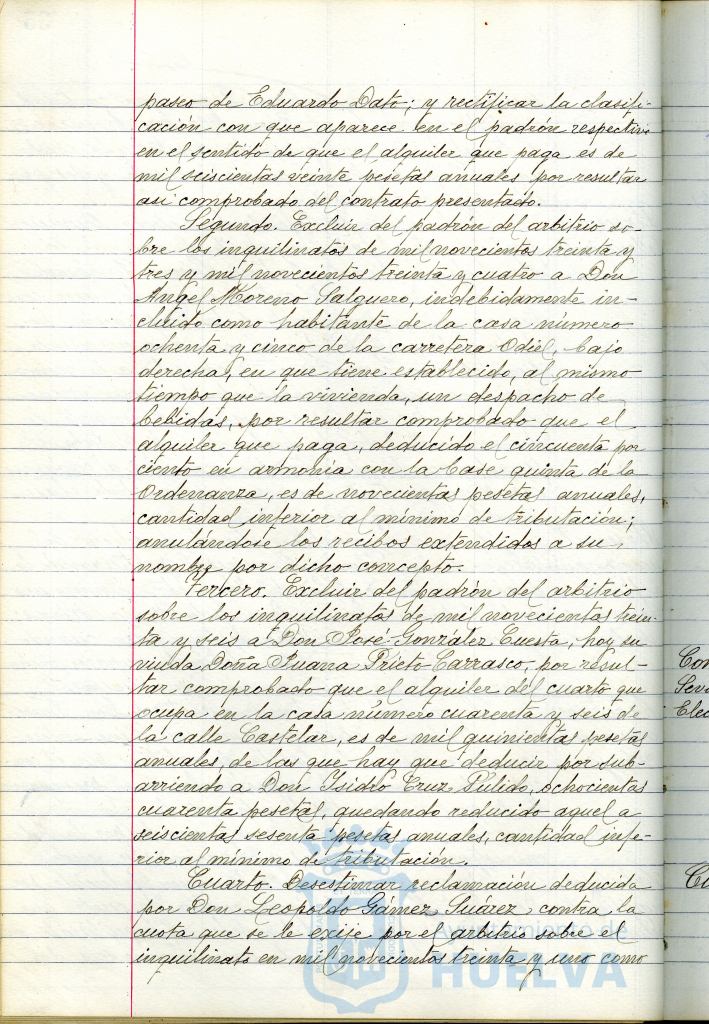 paseo de Eduardo Dato; y rectificar la clasifi-
cación con que aparece en el padrón respectivo
en el sentido de que el alquiler que paga es de
mil seiscientas veinte pesetas anuales por resultar
así comprobado del contrato presentado.
Segundo. Excluir del padrón del arbitrio so-
bre los inquilinatos de mil novecientos treinta y
tres y mil novecientos treinta y cuatro a Don
Angel Moreno Salguero, indebidamente in-
cluido como habitante de la casa número
ochenta y cinco de la carretera Odiel, bajo
derecha, en que tiene establecido, al mismo
tiempo que la vivienda, un despacho de
bebidas, por resultar comprobado que el
alquiler que paga, deducido el cincuenta por
ciento en armonía con la base quinta de la
Ordenanza, es de novecientas pesetas anuales,
cantidad inferior al mínimo de tributación;
anulándose los recibos extendidos a su
nombre por dicho concepto.
Tercero. Excluir del padrón del arbitrio
sobre los inquilinatos de mil novecientos trein-
ta y seis a Don José González Cuesta, hoy su
viuda Doña Juana Prieto Carrasco, por resul-
tar comprobado que el alquiler del cuarto que
ocupa en la casa número cuarenta y seis de
la calle Castelar, es de mil quinientas pesetas
anuales, de las que hay que deducir por sub-
arriendo a Don Isidro Cruz Pulido, ochocientas
cuarenta pesetas, quedando reducido aquel a
seiscientas sesenta pesetas anuales, cantidad infe-
rior al mínimo de tributación.
Cuarto. Desestimar reclamación deducida
por Don Leopoldo Gamez Suárez, contra la
cuota que se le exije por el arbitrio sobre el
inquilinato en mil novecientos treinta y uno como
Con
Seva
Elec
Cu
HUELVA